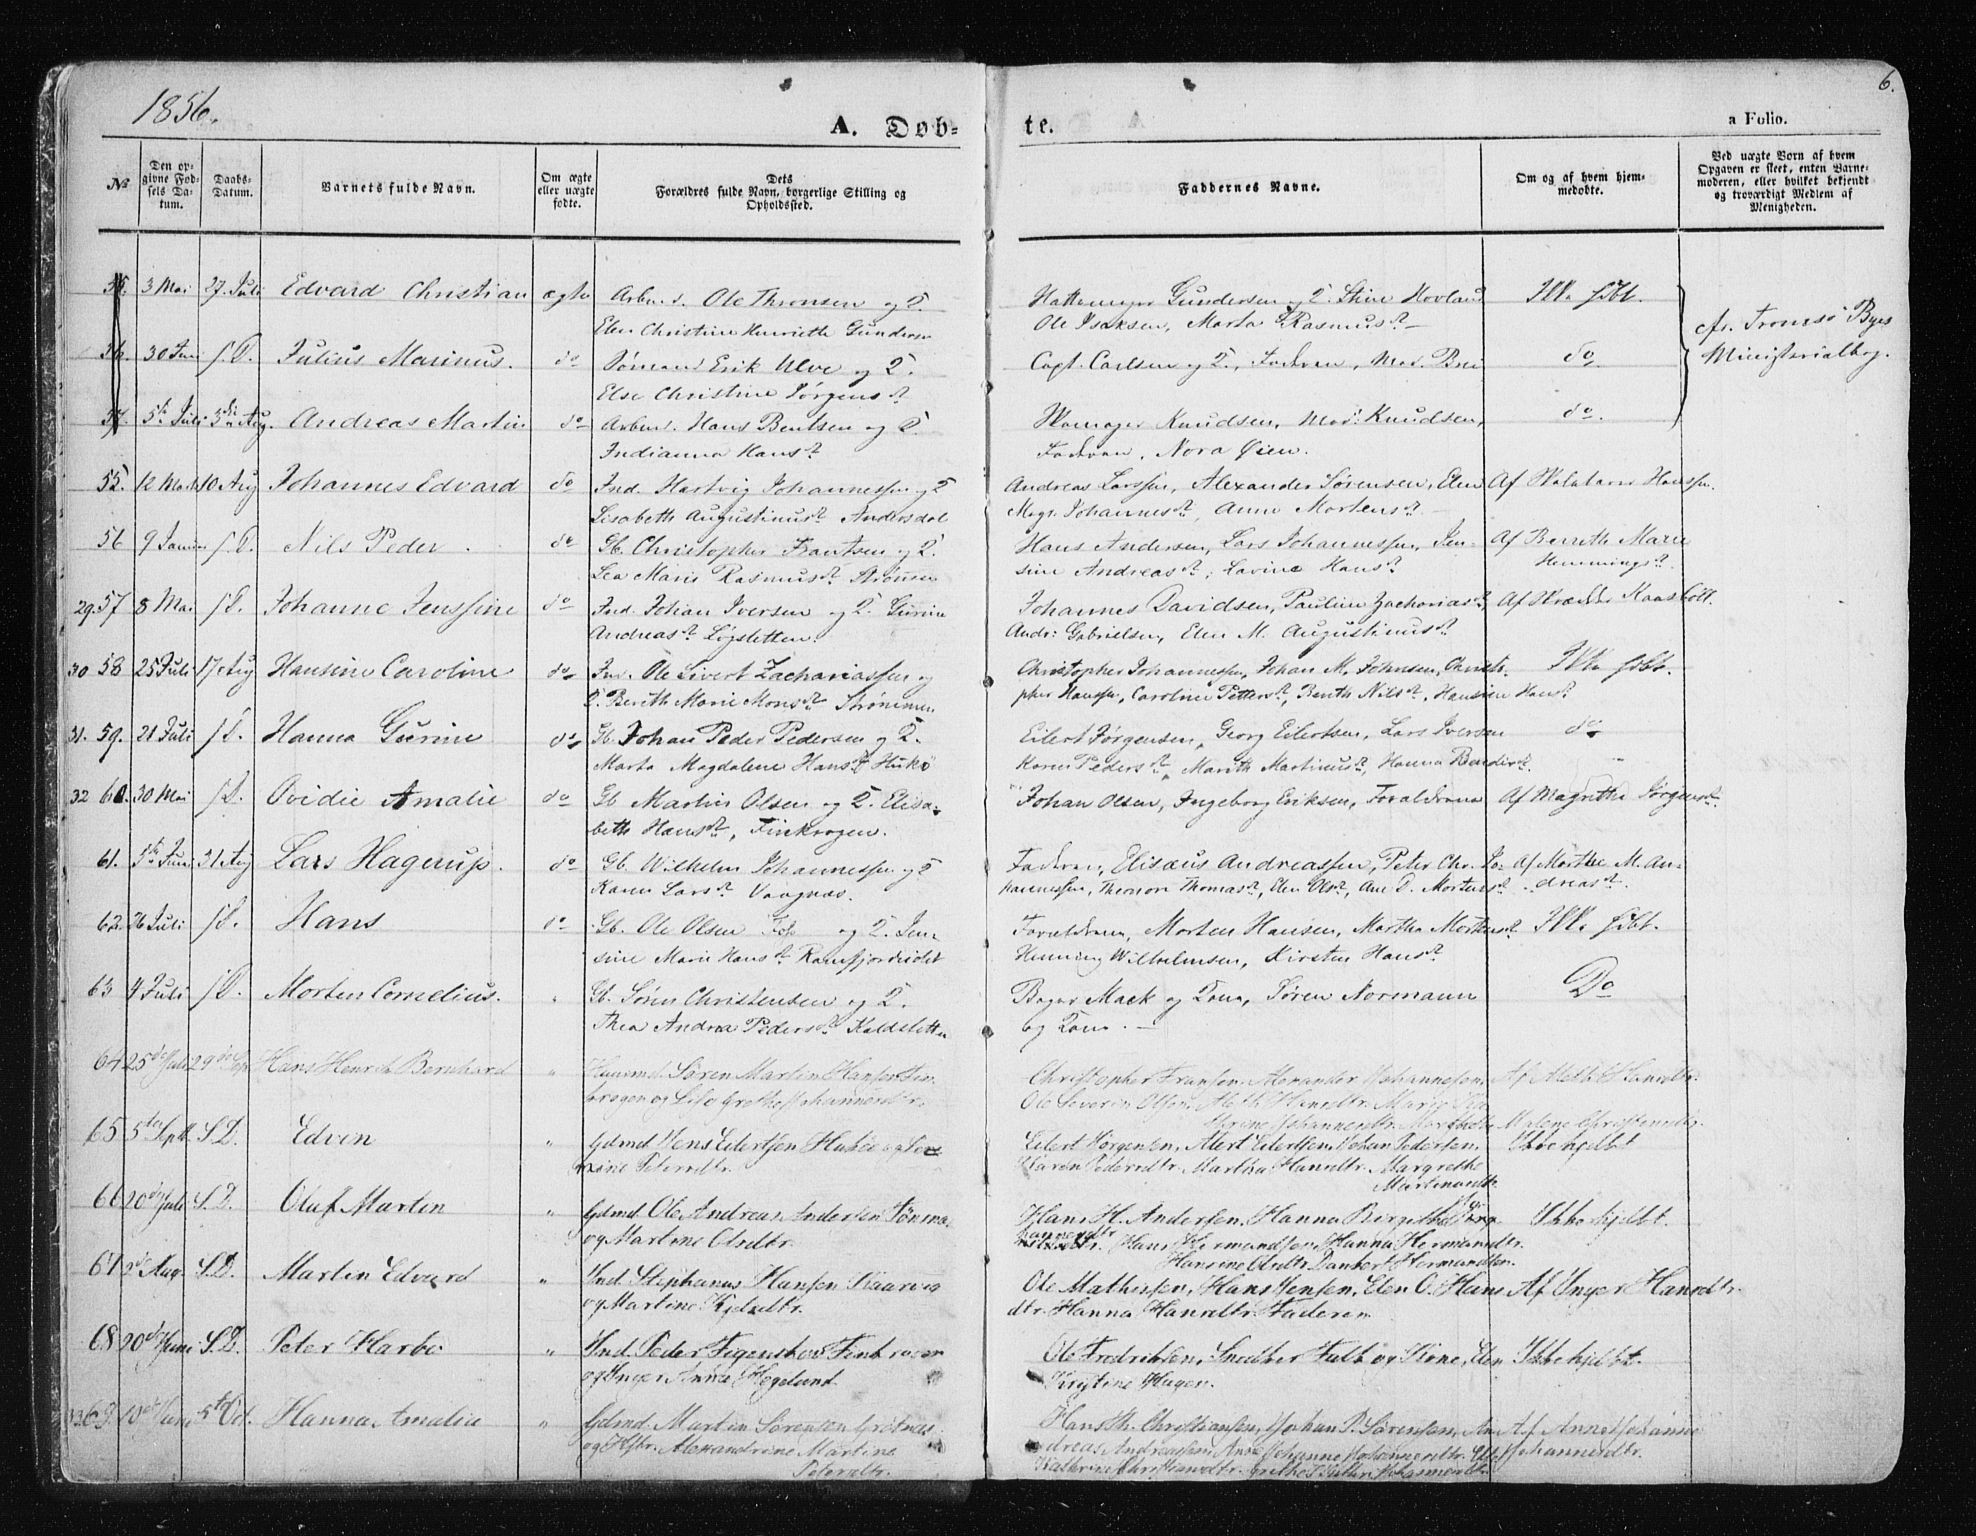 1856.
6.
A. Døb-
te.
a Folio.
№
Den op-
givne Fød-
sels Da-
tum.
Daabs-
Datum.
Barnets fulde Navn.
Om ægte
eller uægte
fødte.
Dets
Forældres fulde Navn, borgerlige Stilling og
Opholdssted.
Faddernes Navne.
Om og af hvem hjem-
medøbte.
Ved uægte Børn af hvem
Opgaven er skeet, enten Barne-
moderen, eller hvilket bekjendt
og troværdigt Medlem af
Menigheden.
35. 3 Mai 27. Juli Edvard Christian ægte Arbmd. Ole Thronsen og H.
Elen Christine Henriette Gunders
Hattemager Gundersen og H. Stine Hovland
Ole Isaksen, Marta Rasmusdt
Ikke hjdbt.
cfr. Tromsø Byes
Ministerialbog.
36. 30 Jun s. D. Julius Marinus. do Sømand Erik Ulve og H.
Else Christine Jørgensdt
Capt. Carlsen og H., Faderen, Mad. Brei
do
37. 5te Juli 3die Aug. Andreas Martin do Arbmd. Hans Bentsen og H.
Indianna Hansdt
Skomager Knudsen, Mad: Knudsen,
Faderen, Nora Øien.
do.
55. 12 Marts 10 Aug Johannes Edvard do Ind. Hartvig Johannessen og H
Lisabeth Augustinusdt Andersdal
Andreas Larssen, Alexander Sørensen, Elen
Magr. Johannesdt, Anne Mortensdt
Af Skolelærer Hanssen.
56 9 Januar s. D. Nils Peder. do Gb. Christopher Frantsen og H.
Lea Marie Rasmusdt Strømmen
Hans Andersen, Lars Johannessen, Jen-
sine Andreasdt, Lavine Hansdt
Af Bereth Marie
Hemmingsdt.
29. 57 8 Mai s. D. Johanne Jenssine do Ind. Johan Iversen og H. Gurine
Andreasdt Løgsletten.
Johannes Davidsen, Pauline Zachariasdt,
Andr: Gabrielsen, Elen M. Augustinusdt
Af Skrædder Kaasbøll.
30 58 25 Juli 17 Aug Hansine Caroline do Ind. Ole Sivert Zachariassen og
H. Bereth Marie Monsdt Strømmen
Christopher Johannessen, Johan M. Johnsen, Christo-
pher Hanssen, Caroline Pettersdt, Berith Nilsdt, Hansine Hansdt
Ikke hjdbt.
31. 59. 21 Juli s. D. Hanna Gurine do Gb. Johan Peder Pedersen og H.
Marta Magdalene Hansdt Hukø
Eilert Jørgensen, Georg Eilertsen, Lars Iversen
Karen Pedersdt, Mareth Martinusdt, Hanna Bendixdt.
do
32 60. 30 Mai s. D. Ovidie Amalie do Gb Martin Olsen og H. Elisa-
beth Hansdt, Finkrogen.
Johan Olsen, Ingeborg Eriksen, Forældrene
Af Magrethe Jørgensdt.
61. 5te Juni 31 Aug Lars Hagerup. do Gb. Wilhelm Johannessen og H
Karen Larsdt Vaagnæs.
Faderen, Elisæus Andreassen, Peter Chr. Jo-
hannessen, Theonore Thomasdt, Elen Olsdt, An D. Mortensdt
Af Marthe M. An-
dreasdt.
62. 26 Juli s. D. Hans do Gb. Ole Olsen Fos og H. Jen-
sine Marie Hansdt Ramfjordeidet
Forældrene, Morten Hansen, Martha Mortensdt.
Henning Wilhelmsen, Kirsten Hansdt
Ikke hjdbt.
63 4 Juli s. D. Morten Cornelius. " Gb. Søren Christensen og H.
Thea Andrea Pedersdt Kaldsletten
Bager Mack og Kone, Søren Normann
og Kone.
Do
64 25de Juli 29de Sep Hans Henrik Bernhard " Huusmd. Søren Martin Hansen Fin-
krogen og Lise Grethe Johannesdtr.
Christopher Fransen. Alexander Johannesen.
Ole Severin Olsen. Meth Hansdtr.
Af Meth Hansdtr.
65 5te Sept S. D. Edvin " Gdmd Jens Eilertsen Hukø og
sine Petersdtr.
Eilert Jørgensen, Alert Eilertsen, Johan Pedersen.
Karen Pedersdtr. Martha Hansdtr. Margrethe
Martinusdtr.
Ikke hjdbt
66 20de Juli S. D. Oluf Martin " Gdmd. Ole Andreas Andersen Tønsnæs
og Martine Olsdtr.
Hans H. Andersen. Hanna Birgithe
Hans Hermandsen, Hanna Hermandsdtr.
Hansine Olsdtr. Danbert Hermandsen.
Ikke hjdbt.
67 2de Aug. S. D. Martin Edvard " Ind. Stephanus Hansen Kaarvig
og Martine Kjelsdtr.
Ole Mathisen, Hans Jensen, Elen O. Hans
dtr. Hanna Hansdtr. Faderen
Af Inger Hansdtr.
68 20de Juni S. D. Peter Harbo " Ind. Peder Figenschou Finkrogen
og Inger Anne Hegelund.
Ole Fredriksen, Snedker Falk og Kone, Elen
Kristine Hagen.
Ikke hjdbt.
33 69. 10de Juni 5te Oct. Hanna Amalia " Gdmd. Martin Sørensen Grøtnæs
og Hstr. Alexandrine Martine
Petersdtr.
Hans Th. Christiansen, Johan P. Sørensen, An-
dreas Andreassen, Anne Johanne Johannesdtr.
Kathrine Christiansdtr.
Af Anne Johanne
Johannesdtr.